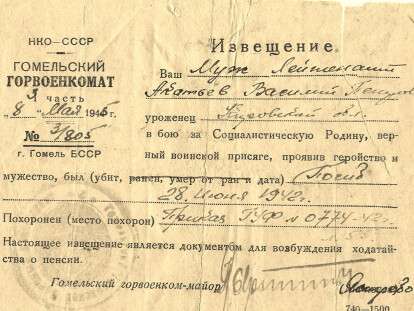 НКО—СССР
ГОМЕЛЬСКИЙ
ГОРВОЕНКОМАТ
3 часть
"8" Мая 1945 г.
№ 3/805
г. Гомель БССР
Извещение.
Ваш Муж Лейтенант
Василий
уроженец обл.
в бою за Социалистическую Родину, вер-
ный воинской присяге, проявив геройство и
мужество, был (убит, ранен, умер от ран и дата) Погиб
28 июня 1942 г.
Похоронен (место похорон) Приказ ГУФ № 0774-42 г.
Настоящее извещение является документом для возбуждения ходатай-
ства о пенсии.
Гомельский горвоенком-майор
740—1500